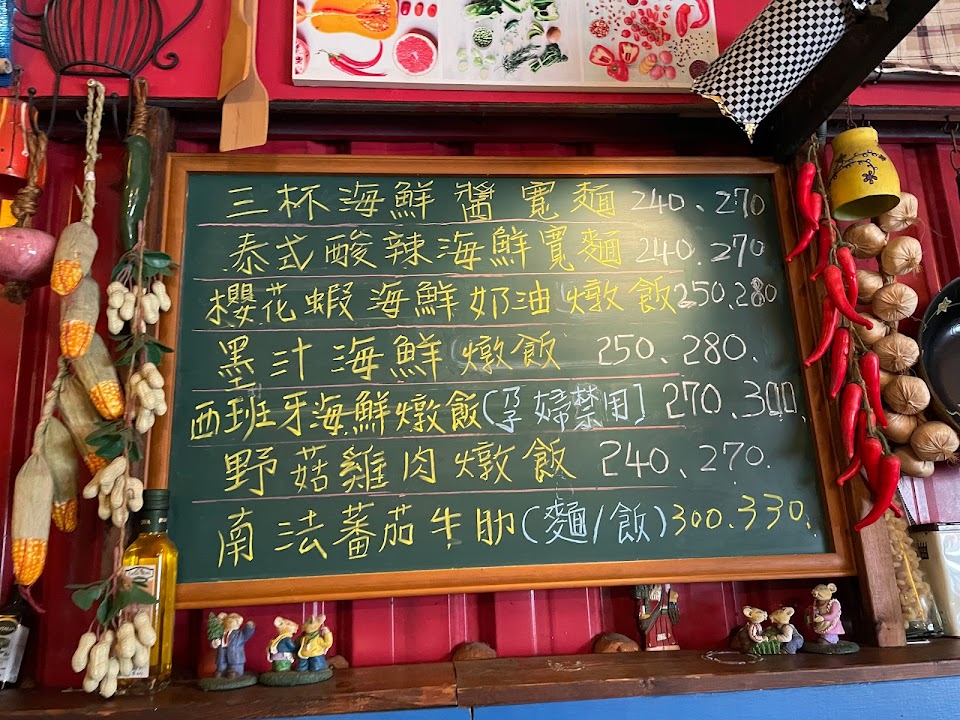 三杯海鮮醬寬麵240、270
泰式酸辣海鮮寬麵240.270
櫻花蝦海鮮奶油燉飯250.280
黑汁海鮮燉飯 250、280.
西班牙海鮮燉飯(孕婦禁用] 270.300.
野菇雞肉燉飯 240、270.
南法蕃茄牛肋(麵/飯)300.330.